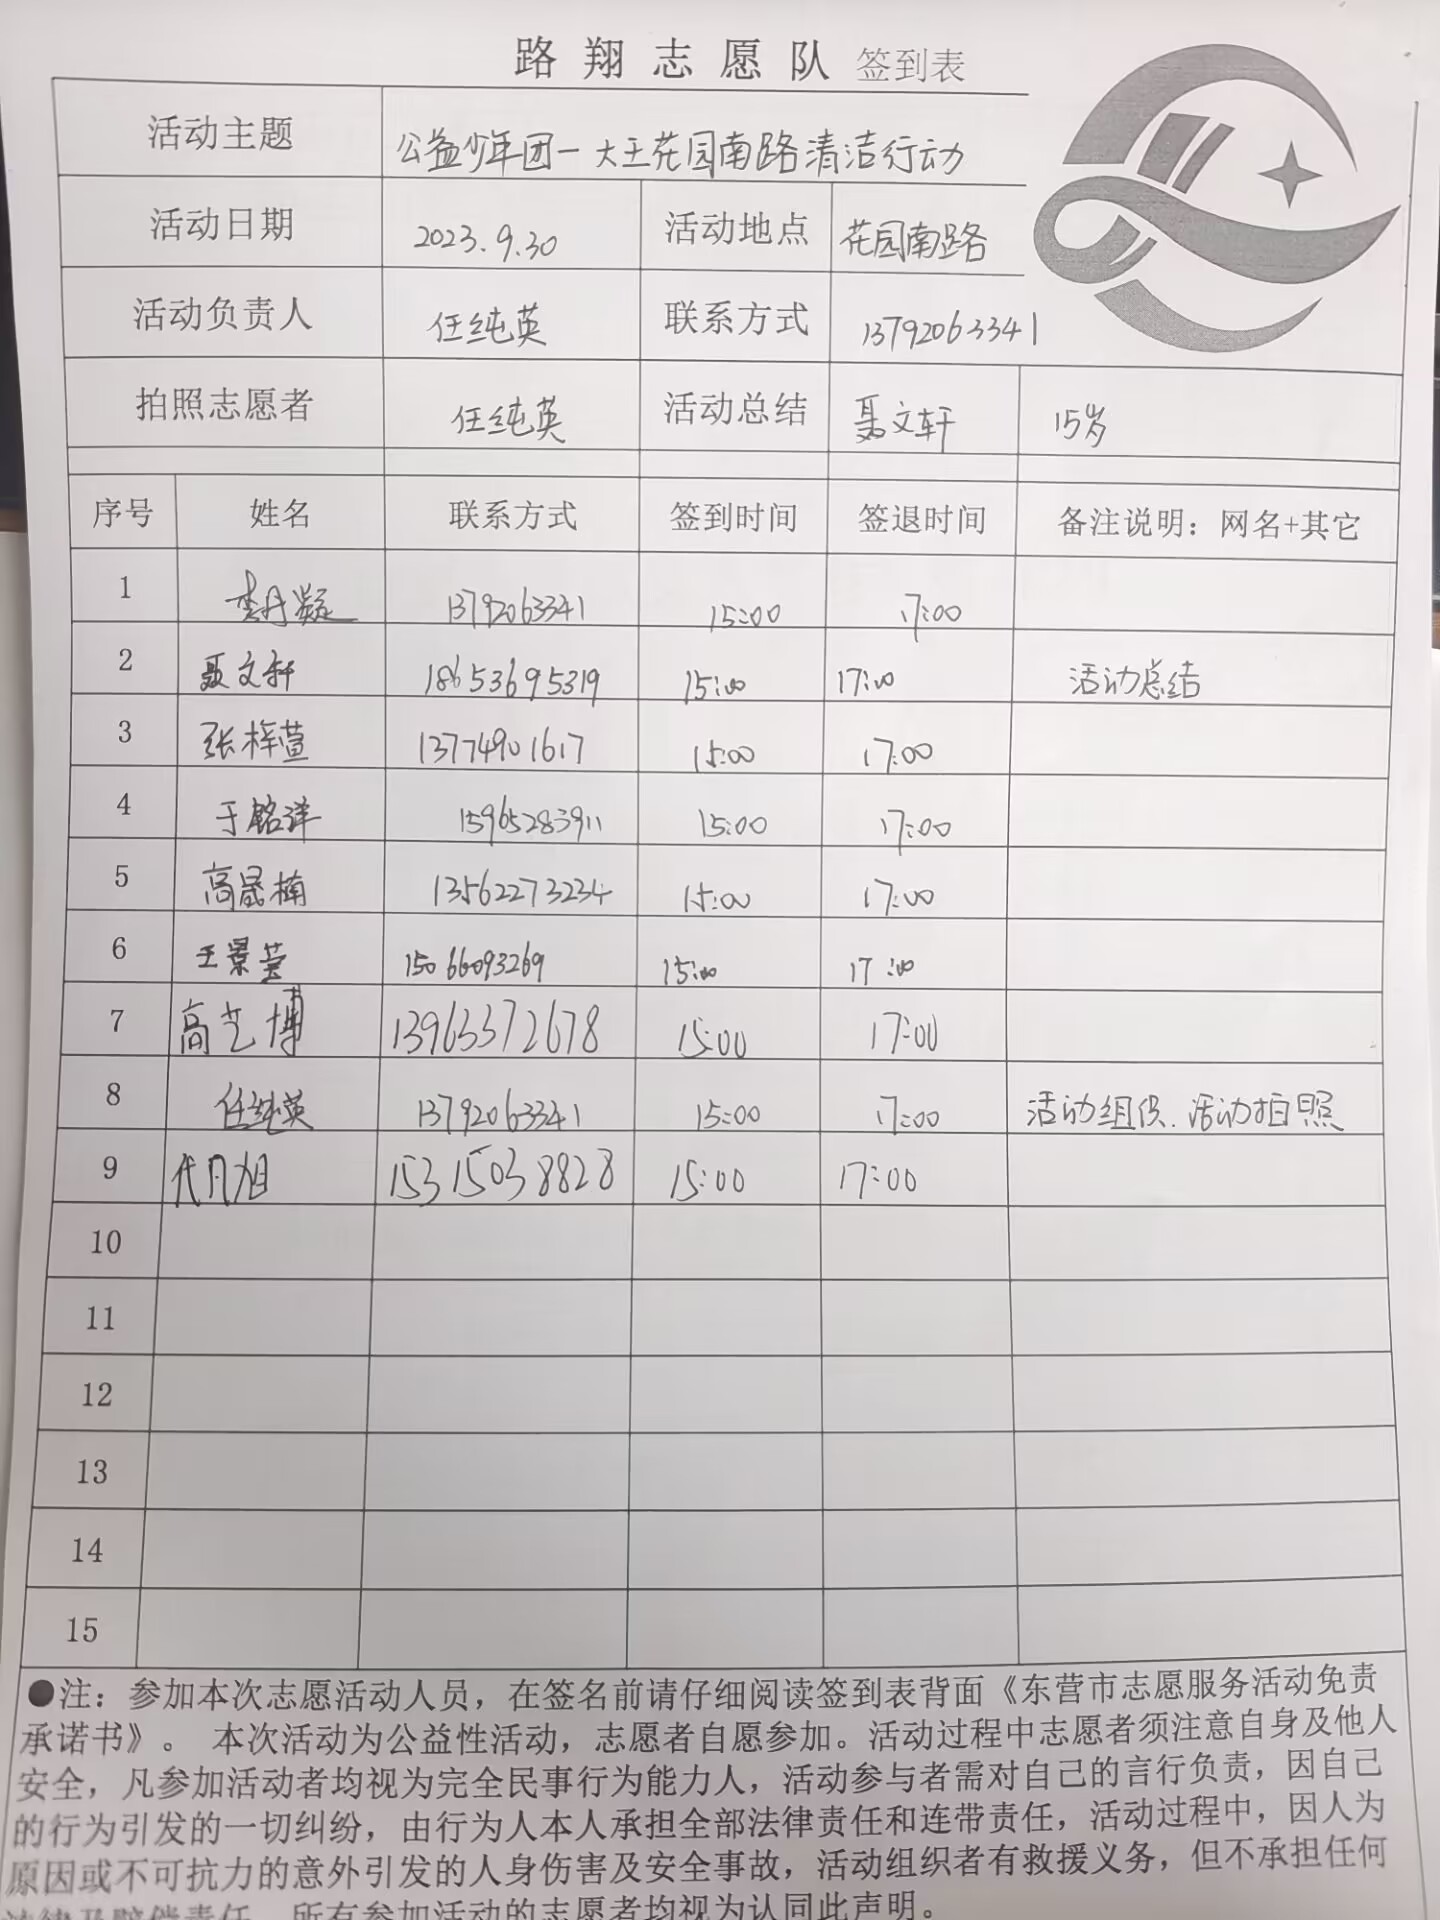 路翔志愿队 签到表
活动主题 公益少年团一大王花园南路清洁行动
活动日期 2023.9.30 活动地点 花园南路
活动负责人 任纯英 联系方式 13792063341
拍照志愿者 任纯英 活动总结 聂文轩 15岁
序号 姓名 联系方式 签到时间 签退时间 备注说明：网名+其它
1 李丹凝 13792063341 15:00 17:00
2 聂文轩 18653695319 15:00 17:00 活动总结
3 张梓萱 13774901617 15:00 17:00
4 于铭洋 15965283911 15:00 17:00
5 高晟楠 13562273234 15:00 17:00
6 王景莹 15066093269 15:00 17:00
7 高艺博 13963372678 15:00 17:00
8 任纯英 13792063341 15:00 17:00 活动组织、活动拍照
9 代月旭 15315038828 15:00 17:00
10
11
12
13
14
15
●注：参加本次志愿活动人员，在签名前请仔细阅读签到表背面《东营市志愿服务活动免责
承诺书》。 本次活动为公益性活动，志愿者自愿参加。活动过程中志愿者须注意自身及他人
安全，凡参加活动者均视为完全民事行为能力人，活动参与者需对自己的言行负责，因自己
的行为引发的一切纠纷，由行为人本人承担全部法律责任和连带责任，活动过程中，因人为
原因或不可抗力的意外引发的人身伤害及安全事故，活动组织者有救援义务，但不承担任何
法律及赔偿责任，所有参加活动的志愿者均视为认同此声明。